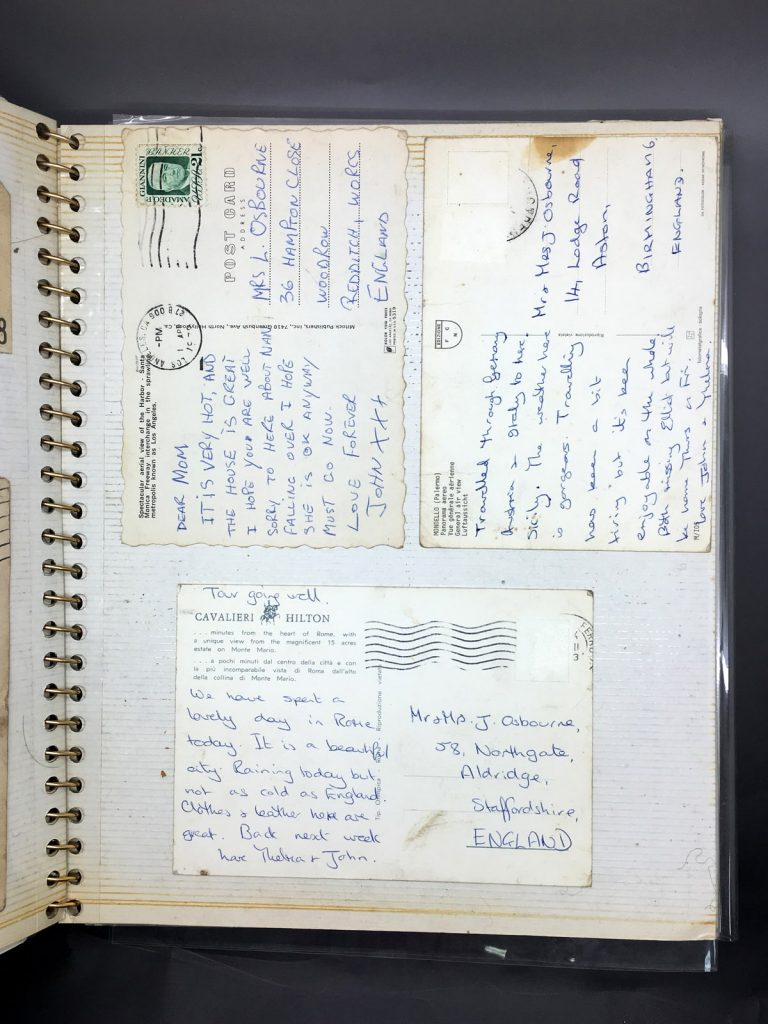 Spectacular aerial view of the Harbor - Santa
Monica Freeway interchange in the sprawling
metropolis known as Los Angeles.
DEAR MOM
IT IS VERY HOT, AND
THE HOUSE IS GREAT
I HOPE YOUR ARE WELL
SORRY TO HERE ABOUT NAN
FALLING OVER I HOPE
SHE IS OK ANYWAY
MUST GO NOW.
LOVE FOREVER
JOHN XXX
AMADEO P.
GIANNINI
BANKER
21c
PM
1 APR
POST CARD
ADDRESS
MRS L. OSBOURNE
36 HAMPTON CLOSE
WOODROW
REDDITCH, WORCS
ENGLAND
MONDELLO (Palermo)
Panorama aereo
Vue générale aérienne
General air view
Luftaussicht
Travelled through Germany
Austria & Italy to here.
Sicily. The weather here
is gorgeous. Travelling
has been a bit
tiring but it's been
enjoyable on the whole.
Both missing Elliot but will
be home Thurs or Fri.
Love John & Thelma
Riproduzione vietata
Mr & Mrs J. Osbourne,
14, Lodge Road
Aston,
BIRMINGHAM 6.
ENGLAND.
Tour going well.
CAVALIERI HILTON
. . . minutes from the heart of Rome, with
a unique view from the magnificent 15 acres
estate on Monte Mario.
. . . a pochi minuti dal centro della città e con
la più incomparabile vista di Roma dall'alto
della collina di Monte Mario.
We have spent a
lovely day in Rome
today. It is a beautiful
city. Raining today but
not as cold as England.
Clothes & leather here are
great. Back next week
Love Thelma & John.
Riproduzione vietata
Mr & Mrs. J. Osbourne,
58, Northgate,
Aldridge,
Staffordshire,
ENGLAND